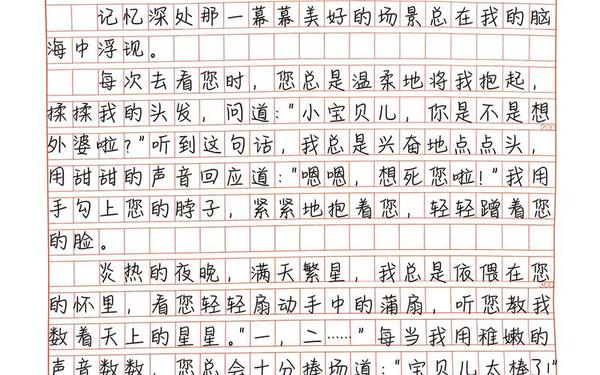 记忆深处那一幕幕美好的场景总在我的脑
海中浮现。
每次去看您时，您总是温柔地将我抱起，
揉揉我的头发，问道："小宝贝儿，你是不是想
200
外婆啦？"听到这句话，我总是兴奋地点点头，
用甜甜的声音回应道："嗯嗯，想死您啦！"我用
手勾上您的脖子，紧紧地抱着您，轻轻蹭着您
的脸。
炎热的夜晚，满天繁星，我总是依偎在您
300
的怀里，看您轻轻扇动手中的蒲扇，听您教我
数着天上的星星。"一，二……"每当我用稚嫩的
声音数数，您总会十分捧场道："宝贝儿太棒了！"